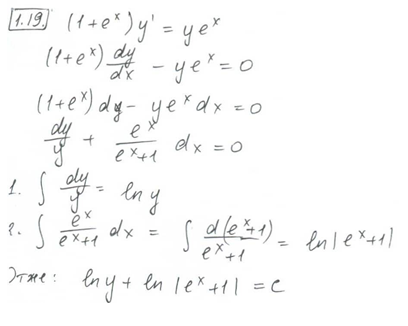 1.19. (1+e^x)y' = ye^x
(1+e^x) dy/dx - ye^x = 0
(1+e^x) dy - ye^x dx = 0
dy/y + e^x/(e^x+1) dx = 0
1. ∫ dy/y = ln y
2. ∫ e^x/(e^x+1) dx = ∫ d(e^x+1)/(e^x+1) = ln|e^x+1|
Отже: ln y + ln |e^x+1| = C